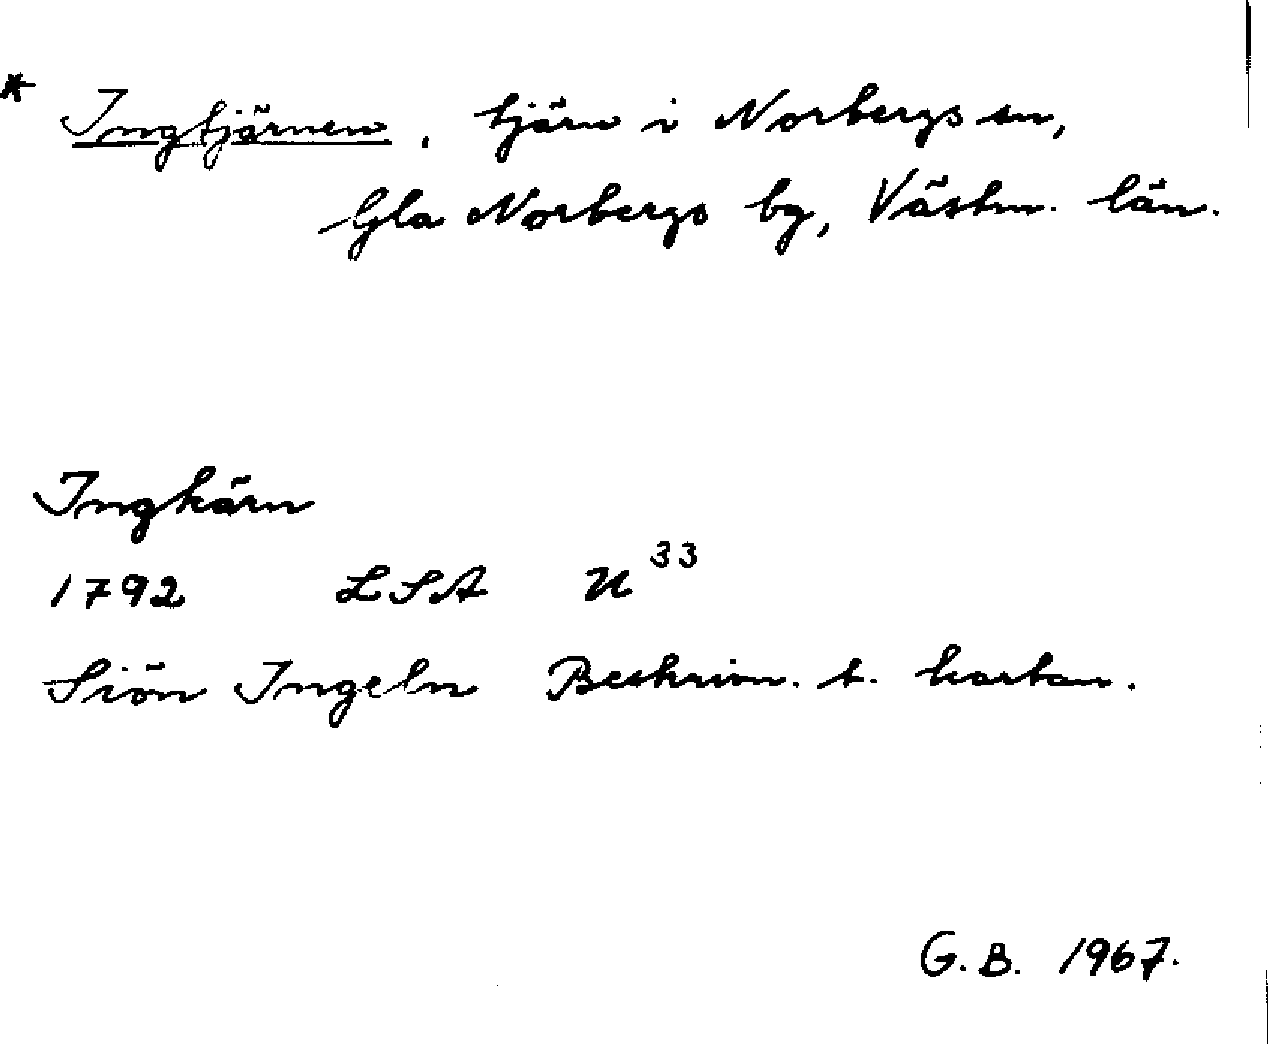 * Ingtjärnen, tjärn i Norbergs sn,
Gla Norbergs bg, Västm. län.
Ingkärn
1792 LSA U 33
Siön Ingeln Beskrivn. t. kartan.
G. B. 1967.